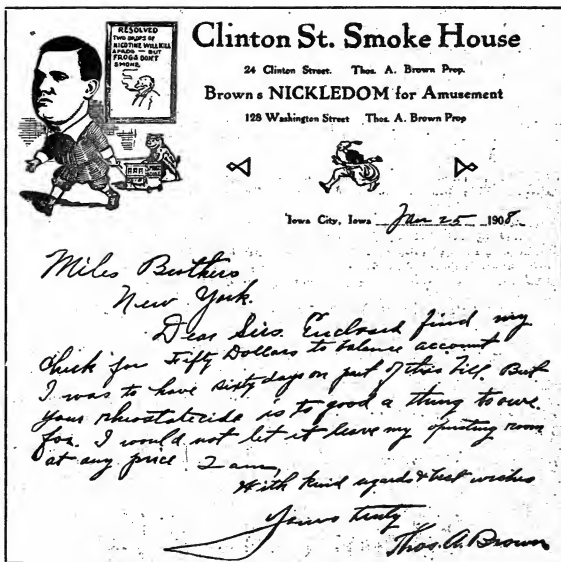 RESOLVED
TWO DROPS OF
NICOTINE WILL KILL
A FROG — BUT
FROGS DON'T
SMOKE
Clinton St. Smoke House
24 Clinton Street. Thos. A. Brown Prop.
Brown's NICKLEDOM for Amusement
128 Washington Street Thos. A. Brown Prop
Iowa City, Iowa Jan 25 1908
Miles Brothers
New York.
Dear Sirs. Enclosed find my
check for Fifty Dollars to balance account
I was to have sixty days on part of this bill. But
your rheostatecide is to good a thing to owe
for. I would not let it leave my operating room
at any price I am,
With kind regards & best wishes
Yours truly
Thos. A. Brown